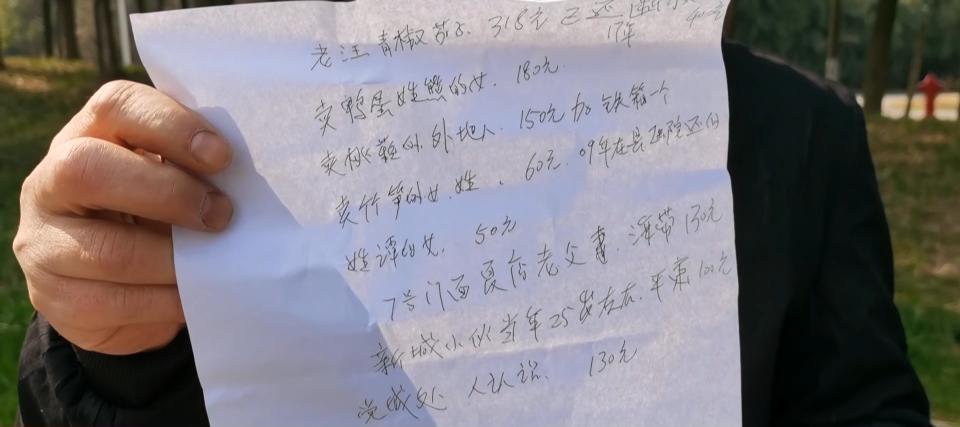 老汪青椒茄子. 318元 已还 17年
卖鸭蛋姓熊的女. 180元.
卖桃 的. 外地人. 150元加铁箱一个
卖竹笋的女. 姓 . 60元. 09年在县医院还的
姓谭的女. 50元
7号门面夏店老父妻. 海带130元
新城小伙当年25岁左右. 苹果100元
党成处 人认识. 130元